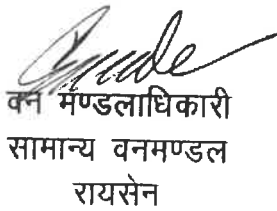 वन मण्डलाधिकारी
सामान्य वनमण्डल
रायसेन